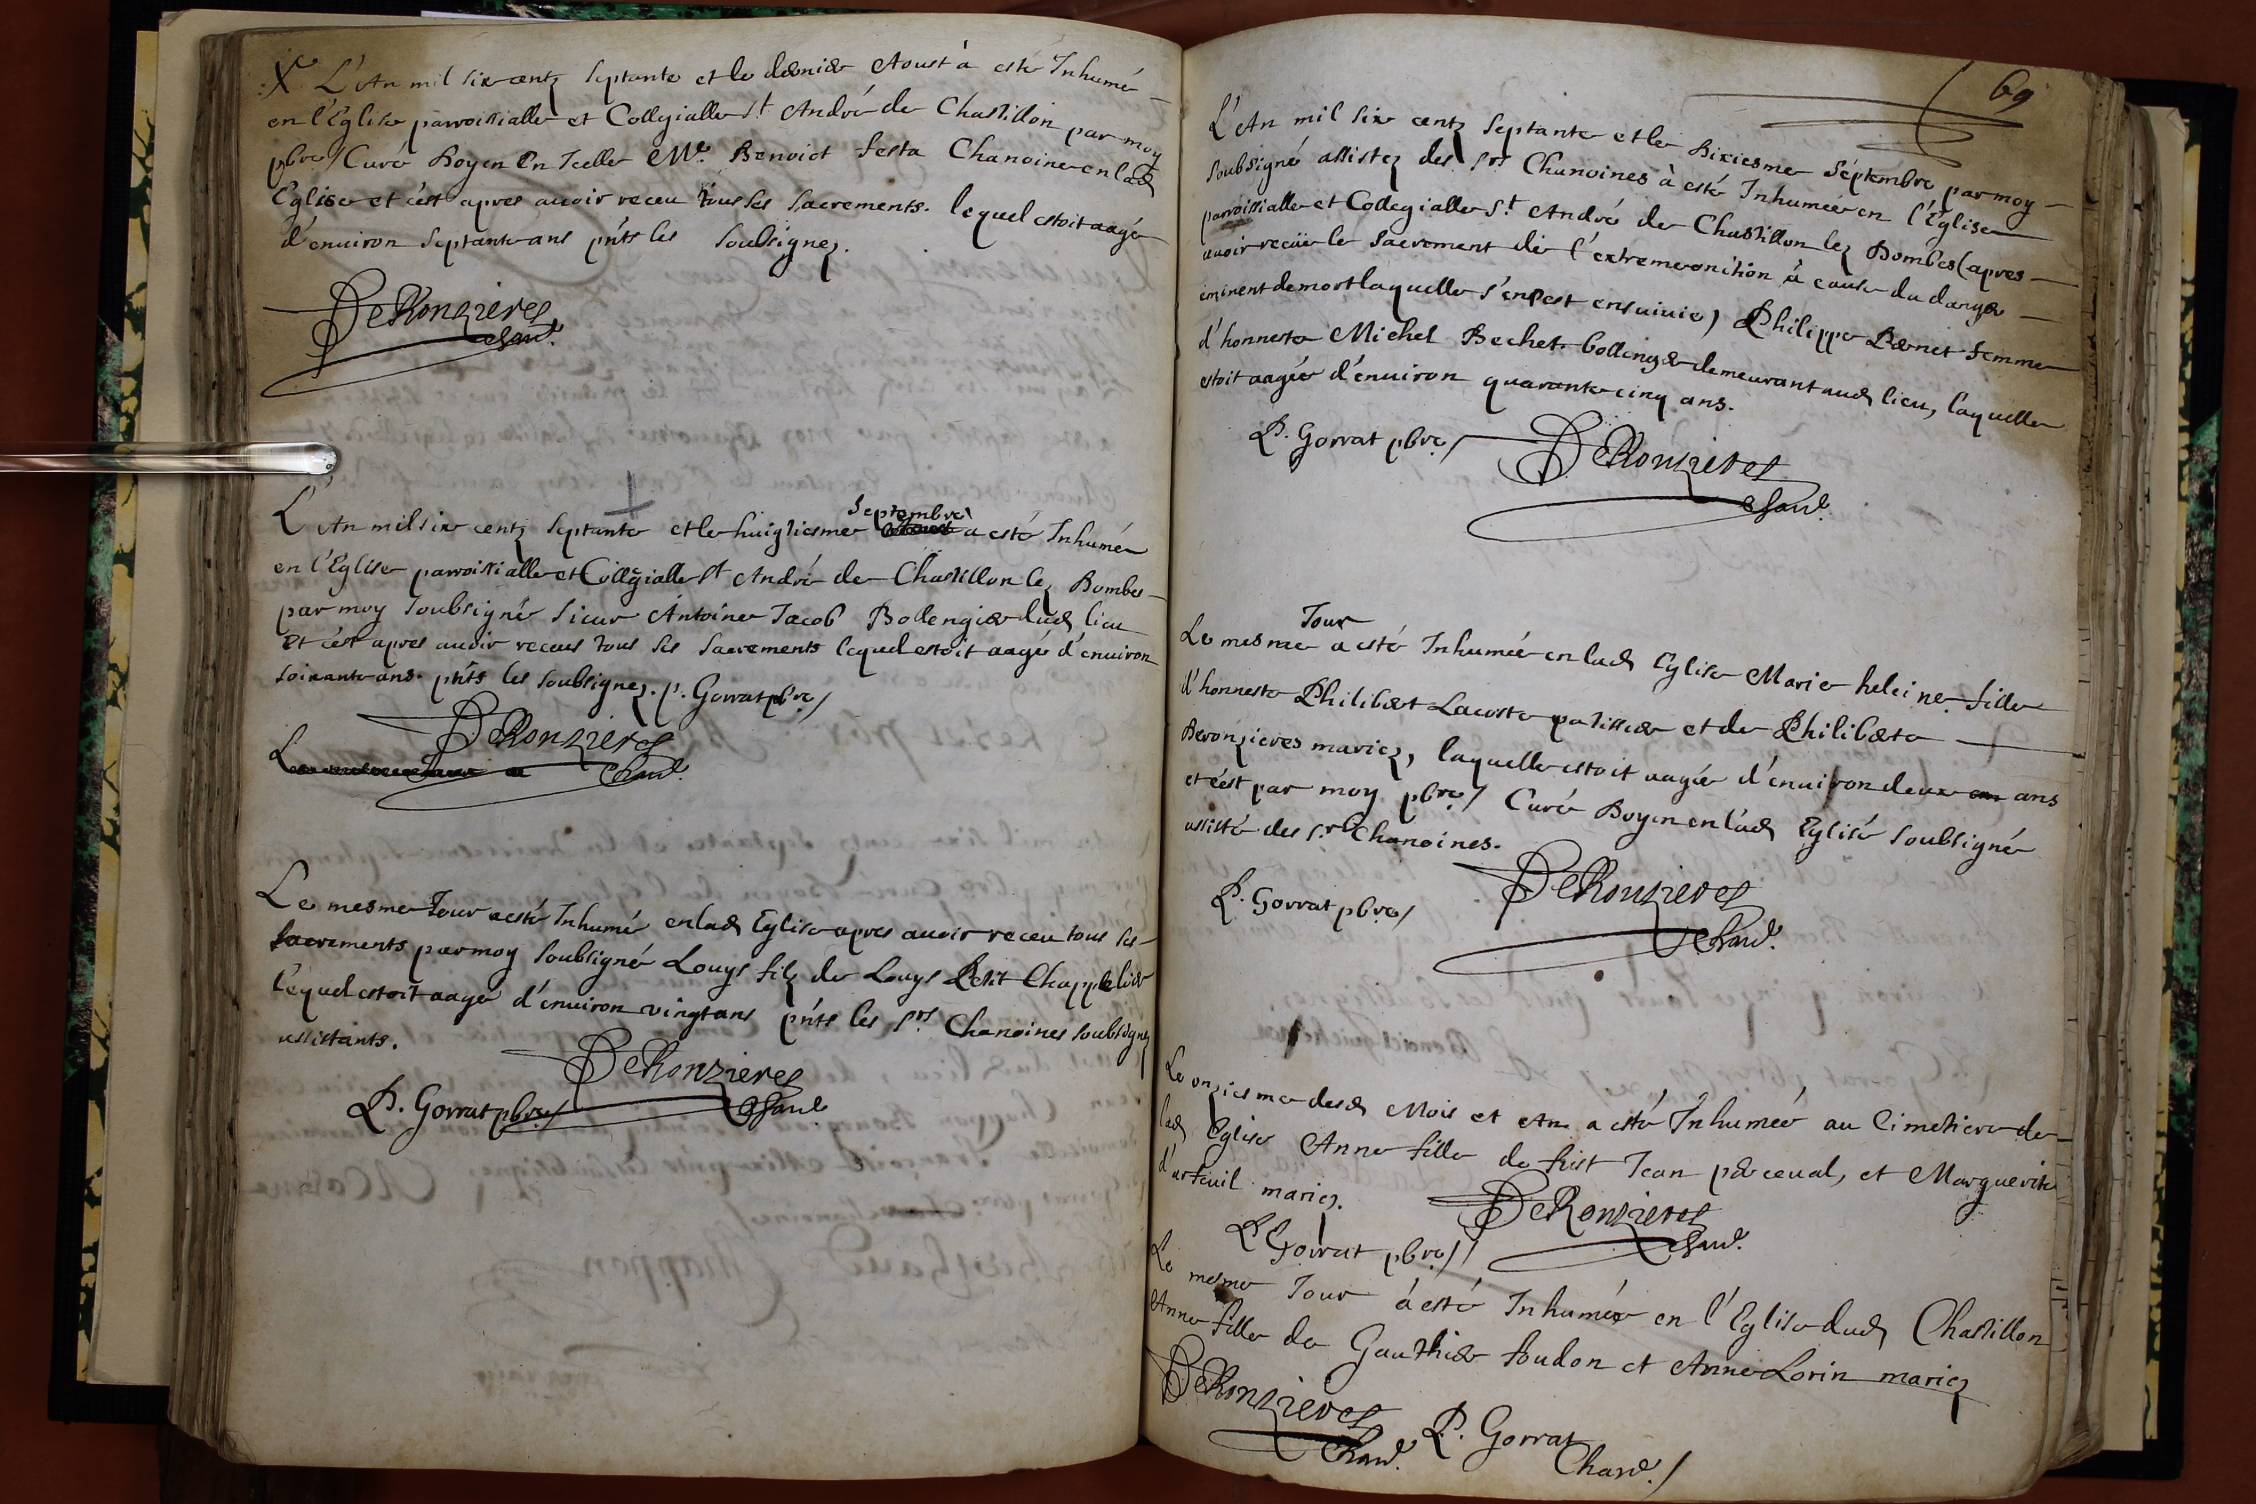 X L'An mil six centz septante et le dernier Aoust à esté Inhumé
en l'Eglise parroissialle et Collegialle St André de Chastillon par moy
pbre/ Curé Doyen En Icelle Mre. Benoict festa Chanoine en lad
Eglise et c'est apres auoir receu tous ses sacrements. lequel estoit aagé
d'enuiron septante ans pnts les soubsignez.
DeRonzieres
Chane.
L'An mil six centz septante et le huigtiesme Septembre a esté Inhumé
en l'Eglise parroissialle et Collegialle St André de Chastillon lez Dombes
par moy soubsigné sieur Antoine Jacob Bollengier dud lieu
Et c'est apres auoir receus tous ses sacrements lequel estoit aagé d'enuiron
soixante ans. pnts les soubsignez. p. Gorrat pbre/
DeRonzieres
Chane.
Le mesme Jour a esté Inhumé en lad Eglise apres auoir receu tous ses
sacrements par moy soubsigné Louys filz de Louys Petit Chappelier
lequel estoit aagé d'enuiron vingt ans pnts les srs Chanoines soubsignez
assistants.
DeRonzieres
Chane
P. Gorrat pbre/
69
L'An mil six centz septante et le Dixiesme Septembre par moy
soubsigné assistez des srs Chanoines à esté Inhumée en l'Eglise
parroissialle et Collegialle St André de Chastillon lez Dombes (apres
auoir recüe le sacrement de l'extreme onction à cause du danger
eminent de mort laquelle s'en est ensuiuie) Philippe Benet femme
d'honneste Michel Bechet bollenger demeurant aud lieu, laquelle
estoit aagée d'enuiron quarante cinq ans.
P. Gorrat pbre/ DeRonzieres
Chane.
Le mesme Jour a esté Inhumée en lad Eglise Marie heleine fille
d'honneste Philibert Lacoste patissier et de Philiberte
Deronzieres mariez, laquelle estoit aagée d'enuiron deux ans
et c'est par moy pbre/ Curé Doyen en lad Eglise soubsigné
assisté des srs Chanoines.
P. Gorrat pbre/ DeRonzieres
Chane.
Le onziesme desd Mois et An a esté Inhumée au Cimetiere de
lad Eglise Anne fille de fust Jean perceual, et Marguerite
d'arteuil mariez.
DeRonzieres
Chane.
P Gorrat pbre/
Le mesme Jour à esté Inhumée en l'Eglise dud Chastillon
Anne fille de Gauthier foudon et Anne Lorin mariez
DeRonzieres
Chane. P. Gorrat
Chane./